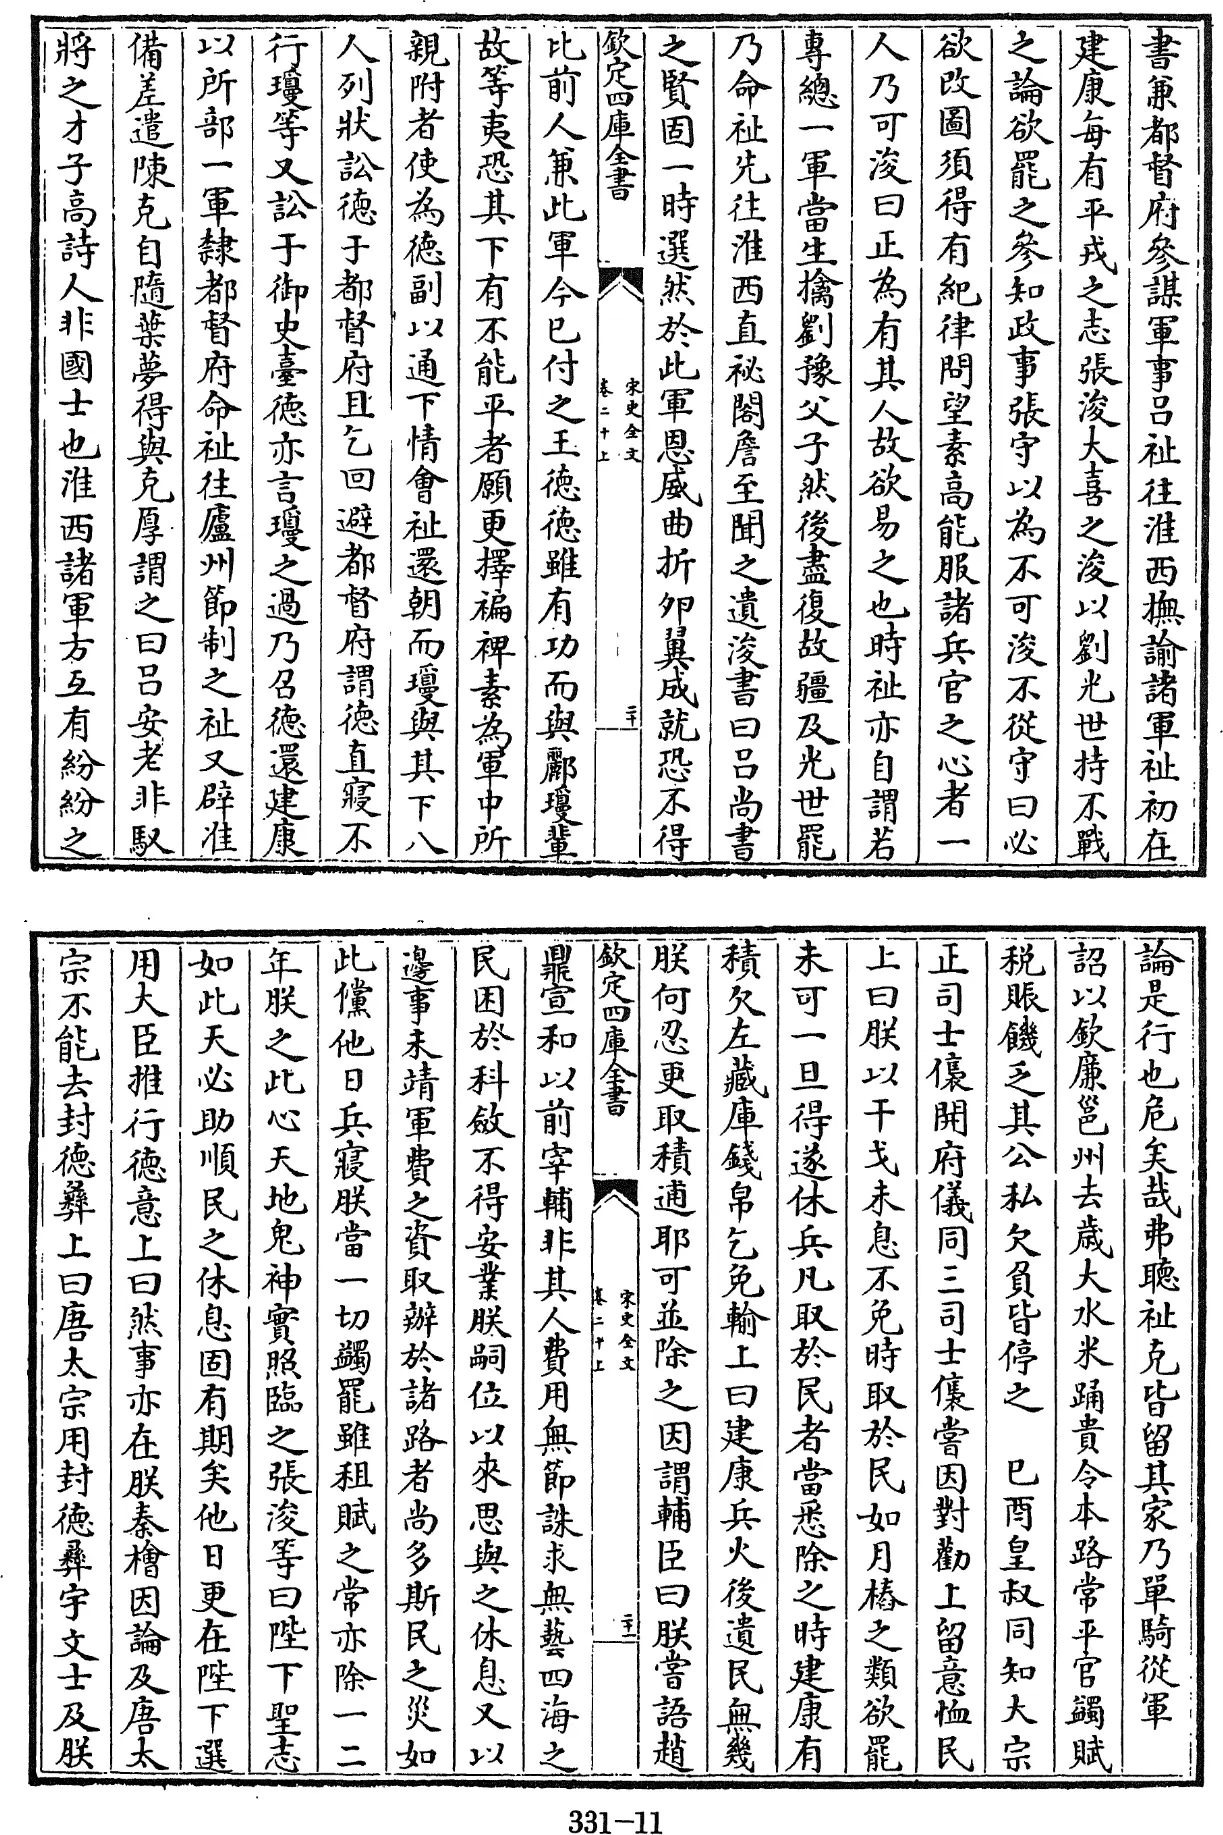 書兼都督府參謀軍事吕祉往淮西撫諭諸軍祉初在
建康每有平戎之志張浚大喜之浚以劉光世持不戰
之論欲罷之參知政事張守以為不可浚不從守曰必
欲改圖須得有紀律問望素高能服諸兵官之心者一
人乃可浚曰正為有其人故欲易之也時祉亦自謂若
專總一軍當生擒劉豫父子然後盡復故疆及光世罷
乃命祉先往淮西直祕閣詹至聞之遺浚書曰吕尚書
之賢固一時選然於此軍恩威曲折卵翼成就恐不得
欽定四庫全書
宋史全文
卷二十上
二十
比前人兼此軍今已付之王德德雖有功而與酈瓊輩
故等夷恐其下有不能平者願更擇褊裨素為軍中所
親附者使為德副以通下情會祉還朝而瓊與其下八
人列狀訟德于都督府且乞回避都督府謂德直寢不
行瓊等又訟于御史臺德亦言瓊之過乃召德還建康
以所部一軍隸都督府命祉往廬州節制之祉又辟准
備差遣陳克自隨葉夢得與克厚謂之曰吕安老非馭
將之才子高詩人非國士也淮西諸軍方互有紛紛之
論是行也危矣哉弗聽祉克皆留其家乃單騎從軍
詔以欽廉邕州去歲大水米踊貴令本路常平官蠲賦
税賑饑乏其公私欠負皆停之　巳酉皇叔同知大宗
正司士㒟開府儀同三司士㒟嘗因對勸上留意恤民
上曰朕以干戈未息不免時取於民如月樁之類欲罷
未可一旦得遂休兵凡取於民者當悉除之時建康有
積欠左藏庫錢帛乞免輸上曰建康兵火後遺民無幾
朕何忍更取積逋耶可並除之因謂輔臣曰朕嘗語趙
欽定四庫全書
宋史全文
卷二十上
二十一
鼎宣和以前宰輔非其人費用無節誅求無藝四海之
民困於科斂不得安業朕嗣位以來思與之休息又以
邊事未靖軍費之資取辦於諸路者尚多斯民之災如
此儻他日兵寢朕當一切蠲罷雖租賦之常亦除一二
年朕之此心天地鬼神實照臨之張浚等曰陛下聖志
如此天必助順民之休息固有期矣他日更在陛下選
用大臣推行德意上曰然事亦在朕秦檜因論及唐太
宗不能去封德彞上曰唐太宗用封德彞宇文士及朕
331-11